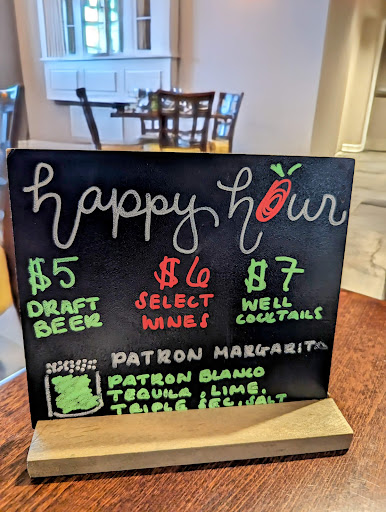 happy hour
$5 $6 $7
DRAFT BEER SELECT WINES WELL COCKTAILS
PATRON MARGARITA
PATRON BLANCO
TEQUILA, LIME,
TRIPLE SEC, SALT